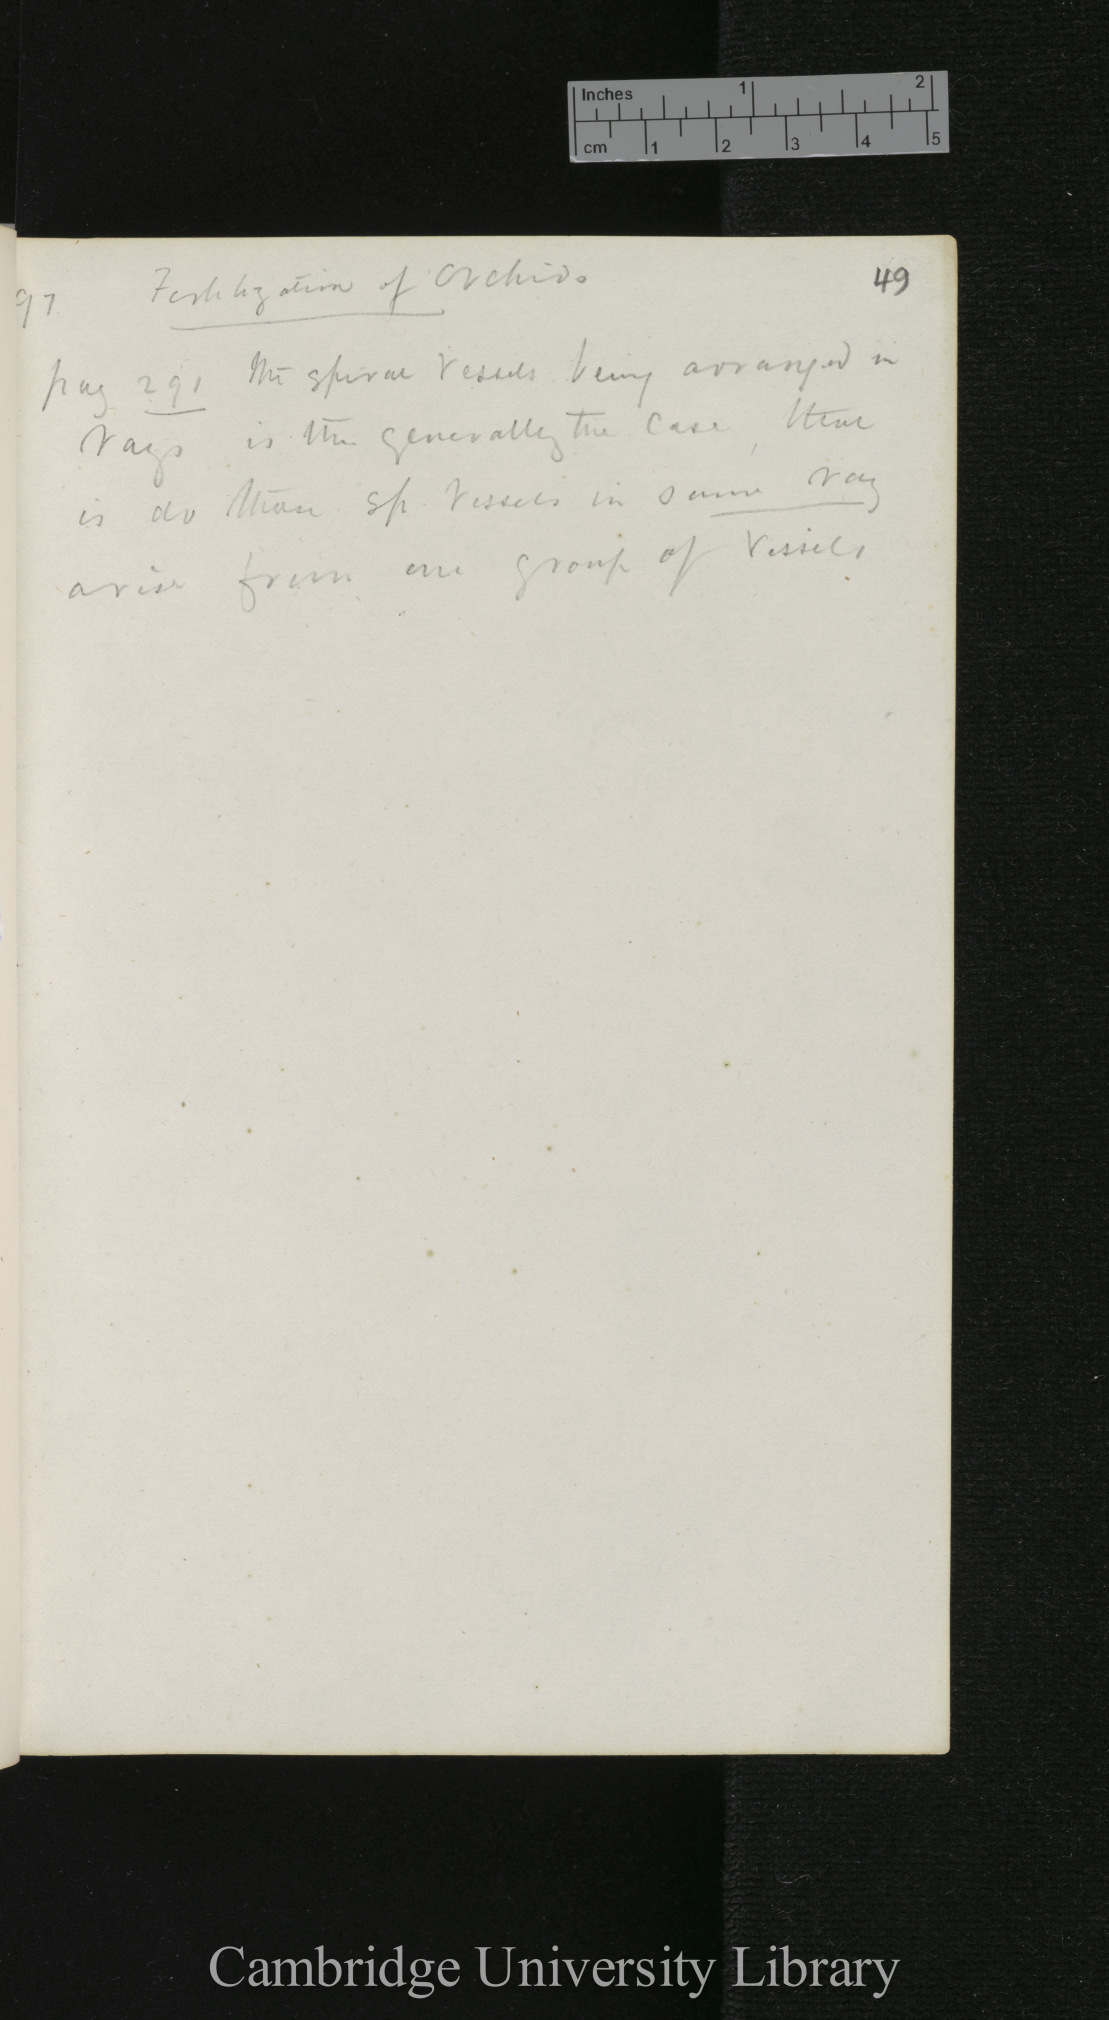 Inches 1 2
cm 1 2 3 4 5
97 Fertilization of Orchids 49
pag 291 the spiral vessels being arranged in
rays is this generally the case, that
is do those sp vessels in same ray
arise from one group of vessels
Cambridge University Library